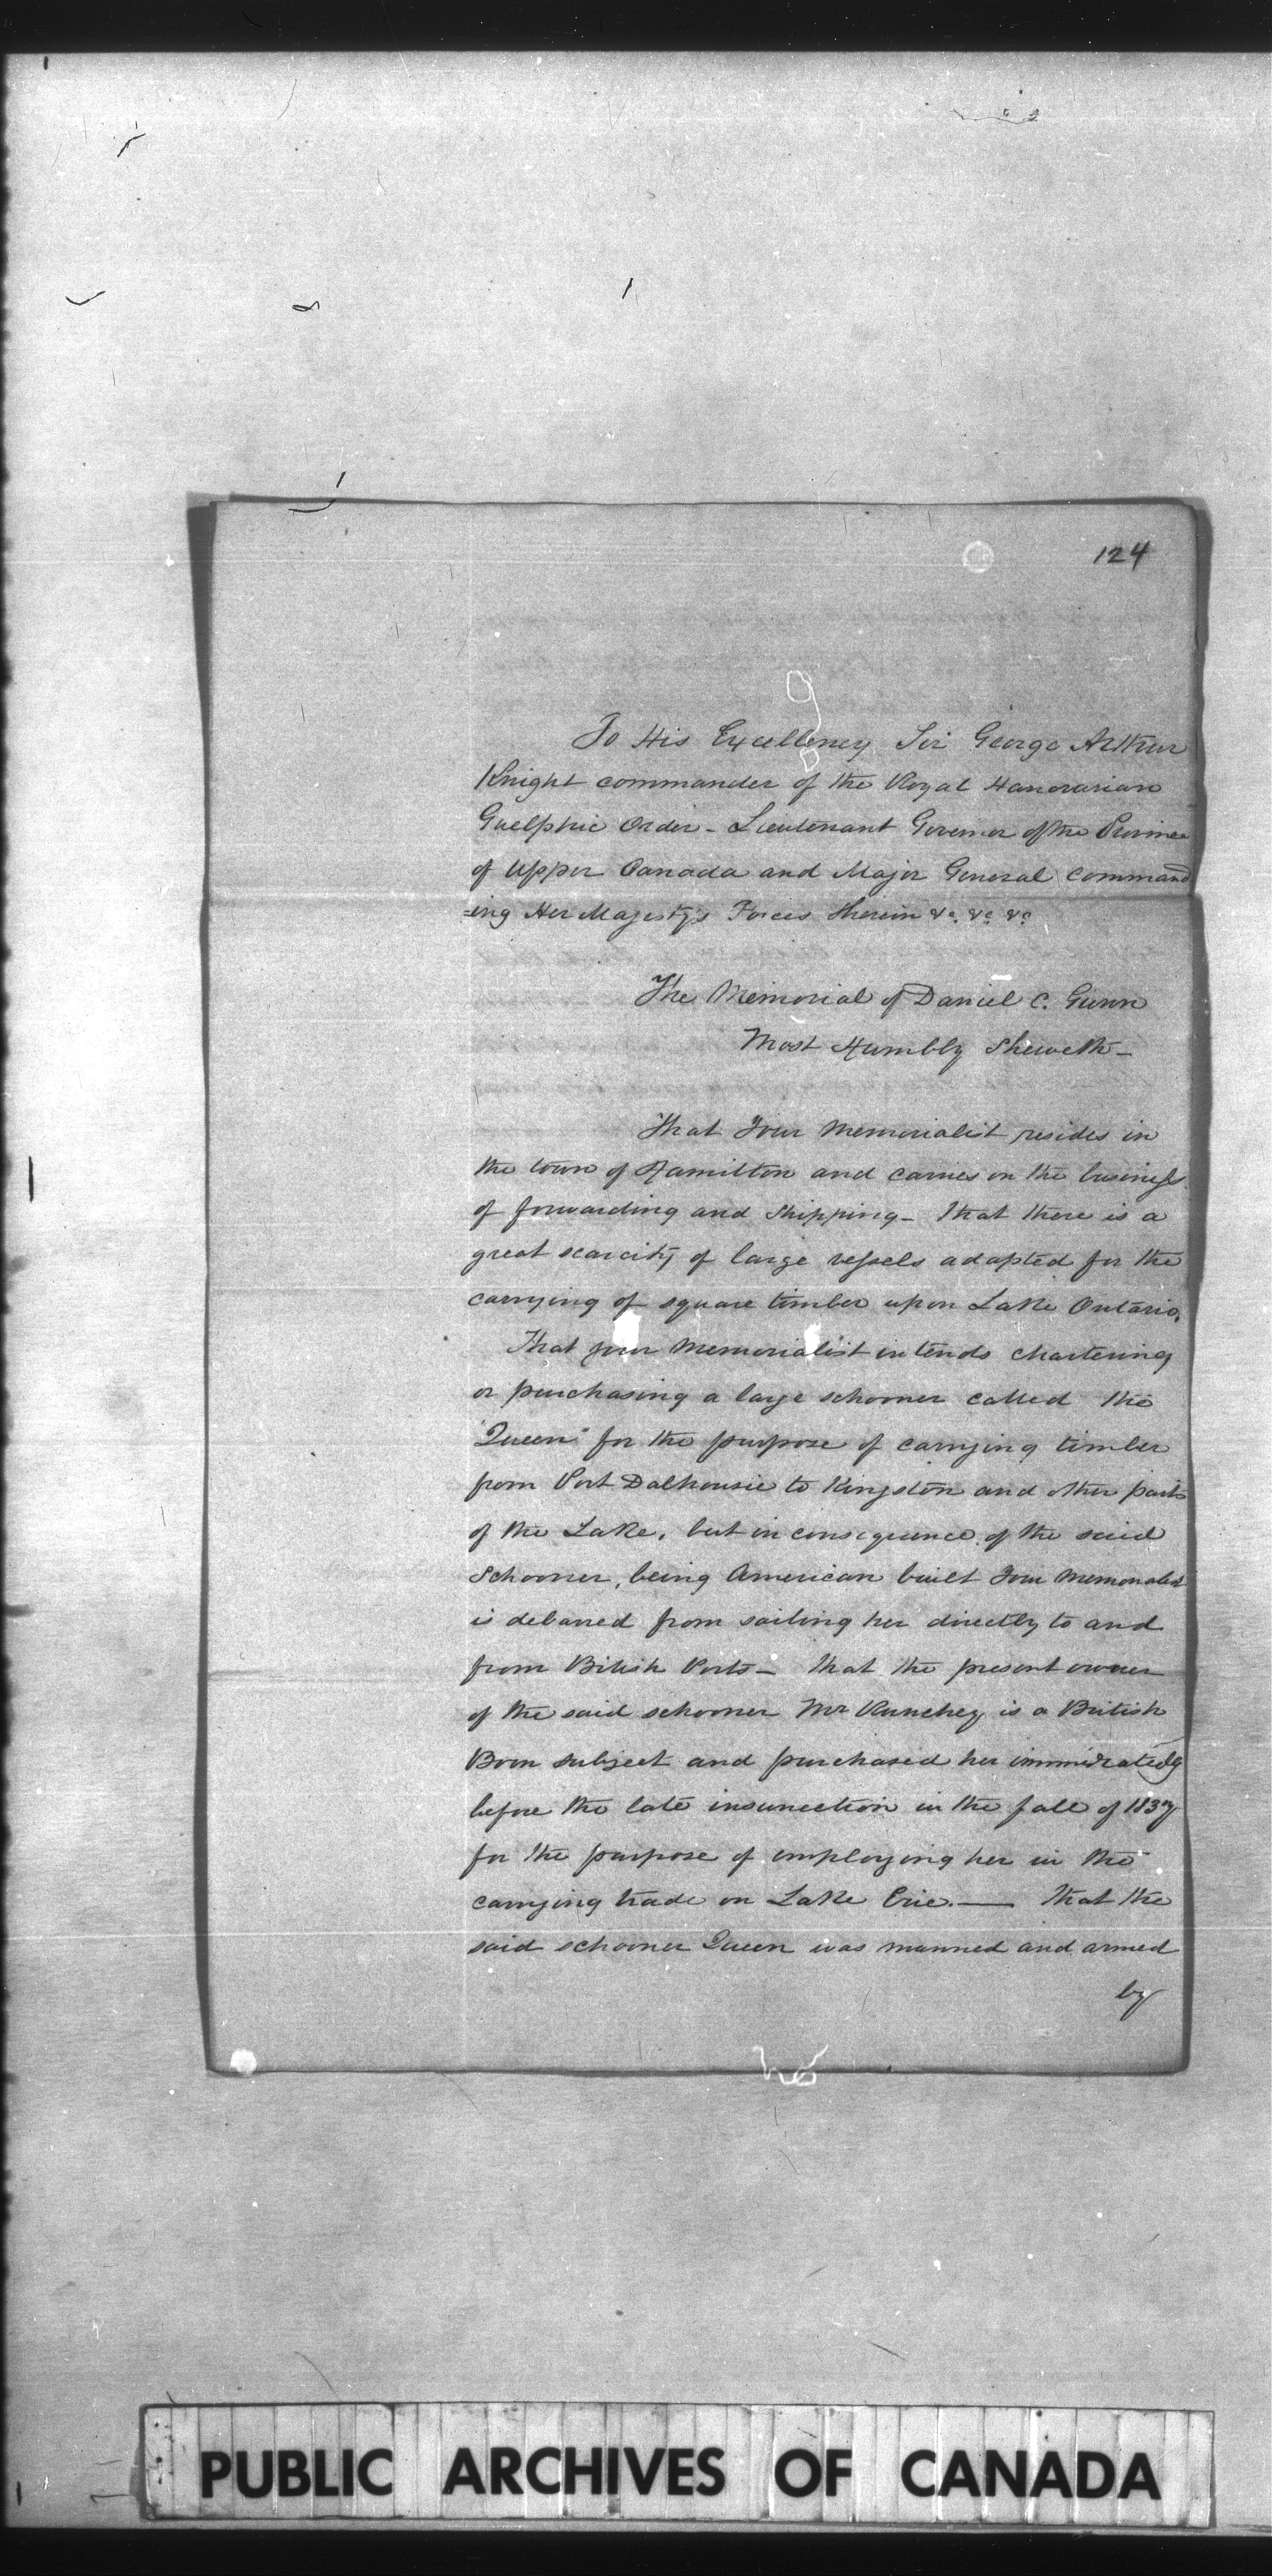 124
To His Excellency Sir George Arthur
Knight commander of the Royal Hanovarian
Guelphic Order - Lieutenant Governor of the Province
of Upper Canada and Major General command
=ing Her Majesty's Forces therein &c. &c. &c.
The Memorial of Daniel C. Gunn
Most Humbly Sheweth -
That Your Memorialist resides in
the town of Hamilton and carries on the business
of forwarding and shipping - That there is a
great scarcity of large vessels adapted for the
carrying of square timber upon Lake Ontario.
That your Memorialist intends chartering
or purchasing a large schooner called the
"Queen" for the purpose of carrying timber
from Port Dalhousie to Kingston and other parts
of the Lake, but in consequence of the said
Schooner, being American built Your Memorialist
is debarred from sailing her directly to and
from British Ports - that the present owner
of the said schooner Mr Runchey is a British
Born subject and purchased her immidiately
before the late insurrection in the fall of 1837
for the purpose of employing her in the
carrying trade on Lake Erie. — that the
said schooner Queen was manned and armed
by
PUBLIC ARCHIVES OF CANADA